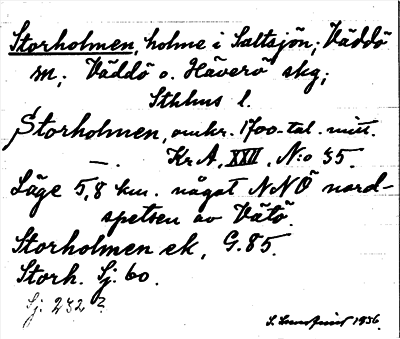 Storholmen, holme i Saltsjön; Väddö
sn; Väddö o. Häverö skg;
Sthlms l.
Storholmen, omkr. 1700-tal. mitt.
—. Kr A, XXII, N:o 35.
Läge 5,8 km. något NNÖ nord-
spetsen av Vätö.
Storholmen ek, G.85.
Storh. Sj. 60.
Sj. 232?
1936.